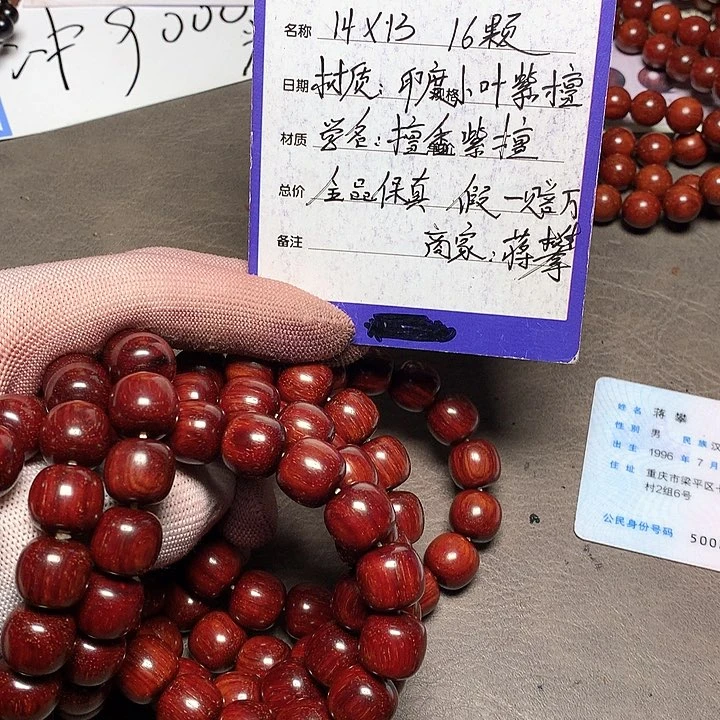 冲 9000
名称 14X13 16颗
日期 材质：印度小叶紫檀
规格
材质 学名：檀香紫檀
单价
总价 全品保真 假一赔万
备注 商家：蒋攀
姓名 蒋攀
性别 男 民族 汉
出生 1996 年 7 月
住址 重庆市梁平区七
村2组6号
公民身份号码 500